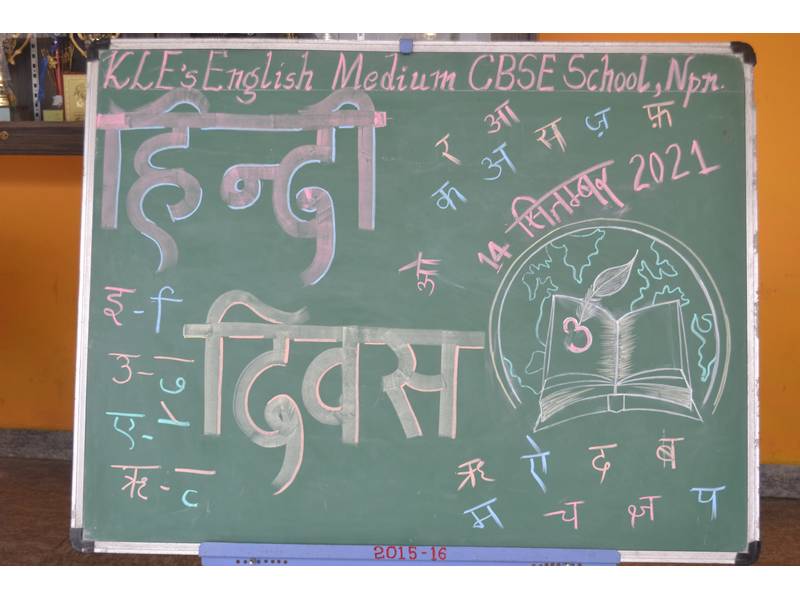 KLE's English Medium CBSE School, Npn.
हिन्दी
दिवस
र आ स ज़ फ़
क अ
14 सितम्बर 2021
इ - ि
उ - ु
ए - े
ऋ - ृ
ऋ ऐ द ब
म च क्ष प
2015-16